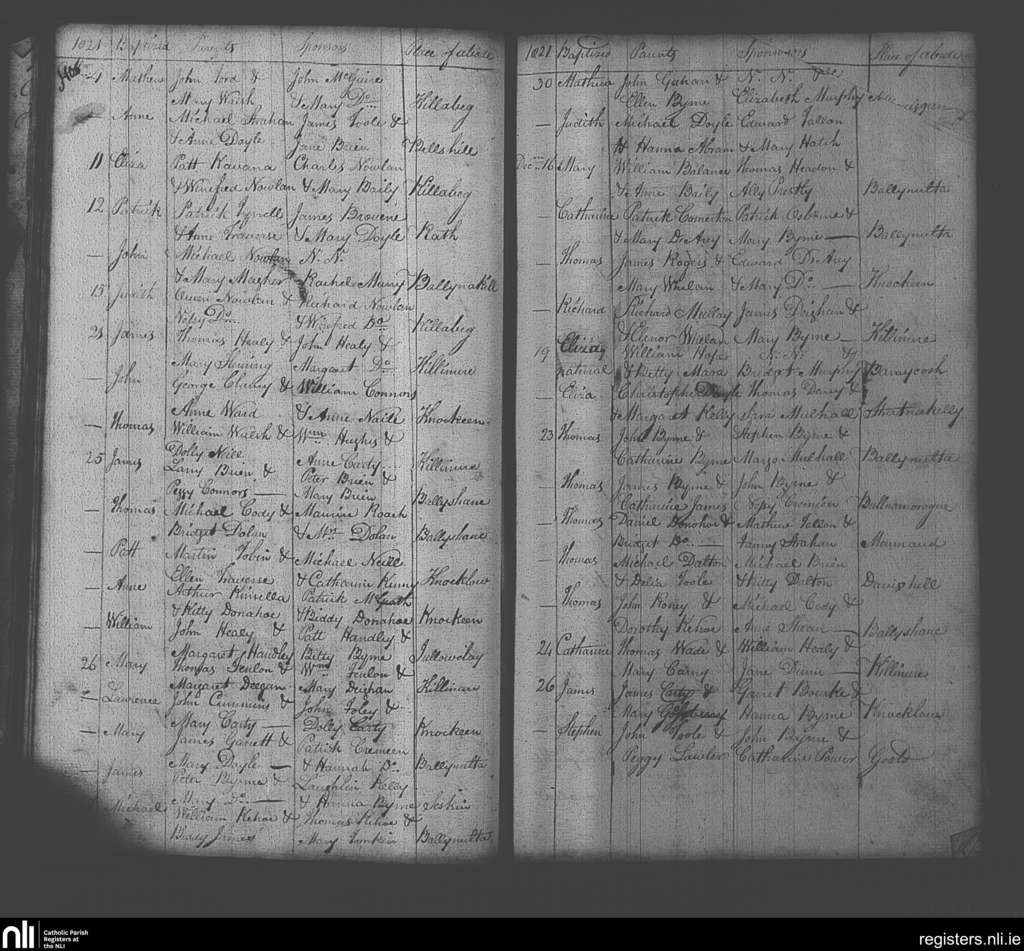 1821 Baptized Parents Sponsors Place of abode
4 Mathew John Ford & John McGuire
Mary Walsh & Mary Do Killabeg
— Anne Michael Strahan James Toole &
& Anne Doyle Jane Brien Bellshill
11 Eliza Patt Kavana Charles Nowlan
& Winefred Nowlan & Mary Baily Killabeg
12 Patrick Patrick Tyrrell James Browene
& Anne Traverse & Mary Doyle Rath
— John Michael Nowlan N. N.
& Mary Magher Rachel Murry Ballynakill
15 Judith Owen Nowlan & Richard Nowlan
Nopey Do & Winefred Do Killabeg
21 James Thomas Healy & John Healy &
Mary Margaret Do Killinure
— John George & William Connors
Anne Ward & Anne Naill Knockeen
— Thomas William Walsh & Wm Hughes &
Dolly Neill Anne Carty Killinure
25 James Larry Brien & Peter Brien &
Peggy Connors — Mary Brien Ballyshane
— Thomas Michael Cody & Maurice Roach
Bridget Dolan & Mrs Dolan Ballyshane
— Patt Martin Tobin & Michael Neill
Ellen Traverse & Catharine Kinny Knocklow
— Anne Arthur Kinsella Patrick McGrath
& Kitty Donahoe & Biddy Donahoe Knockeen
— William John Healy & Patt Handley &
Margaret Handley Betty Byrne Tullowclay
26 Mary Thomas Fenlon & Wm Fenlon &
Margaret Deegan Mary Deighan Killinure
— Lawrence John Cummins & John Foley &
Mary Carty — Dolly Carty Knockeen
— Mary James Garrett & Patrick Cremeen
Mary Doyle — & Hannah Do Ballynulta
— James Peter Byrne & Laughlin Kelly
Mary Do — & Hanna Byrne Seskin
Michael William Kehoe & Thomas Kehoe &
Biddy James Mary Tomkin Ballynulta
1821 Baptized Parents Sponsors Place of abode
30 Mathew John Gahan & N. N.
Ellen Byrne Elizabeth Murphy
— Judith Michael Doyle Edward Fallon
Hanna Abram & Mary Hatch
Decr 16 Mary William Balance Thomas Headon &
& Jane Baily Ally Prestly Ballynulta
— Catharine Patrick Comerton Patrick Osborne &
& Mary DeAvey Mary Byrne — Ballynulta
— Thomas James Rogers & Edward DeAvey
Mary Whelan & Mary Do — Knockeen
— Richard Richard Mullay James Deighan &
Elenor Whelan Mary Byrne — Killinure
19 Eliza William Hope N. N. &
natural & Betty Mara Bridget Murphy Barnycosh
— Eliza Christopher Doyle Thomas Darcy &
& Margaret Kelly Sara Mulhall Shatnakelly
23 Thomas John Byrne & Stephen Byrne &
Catharine Byrne Margo Mulhall Ballynulta
— Thomas James Byrne & John Byrne &
Catharine James Nopy Cremeen Ballnamorogue
— Thomas Daniel Donohoe & Mathew Fallon &
Bridget Do — Fanny Strahan Munnaud
— Thomas Michael Dalton Michael Brien
& Delia Toole & Kitty Dalton Davishill
— Thomas John Roney & Michael Cody &
Dorothy Kehoe Anne — Ballyshane
24 Catharine Thomas Wade & William Healy &
Mary Carny Jane Dunn — Killinure
26 James James Carty & Garret Bourke &
Mary Hanna Byrne Knocklow
— Stephen John Toole & John Byrne &
Peggy Lawler Catharine Power
nli Catholic Parish
Registers at
the NLI
registers.nli.ie